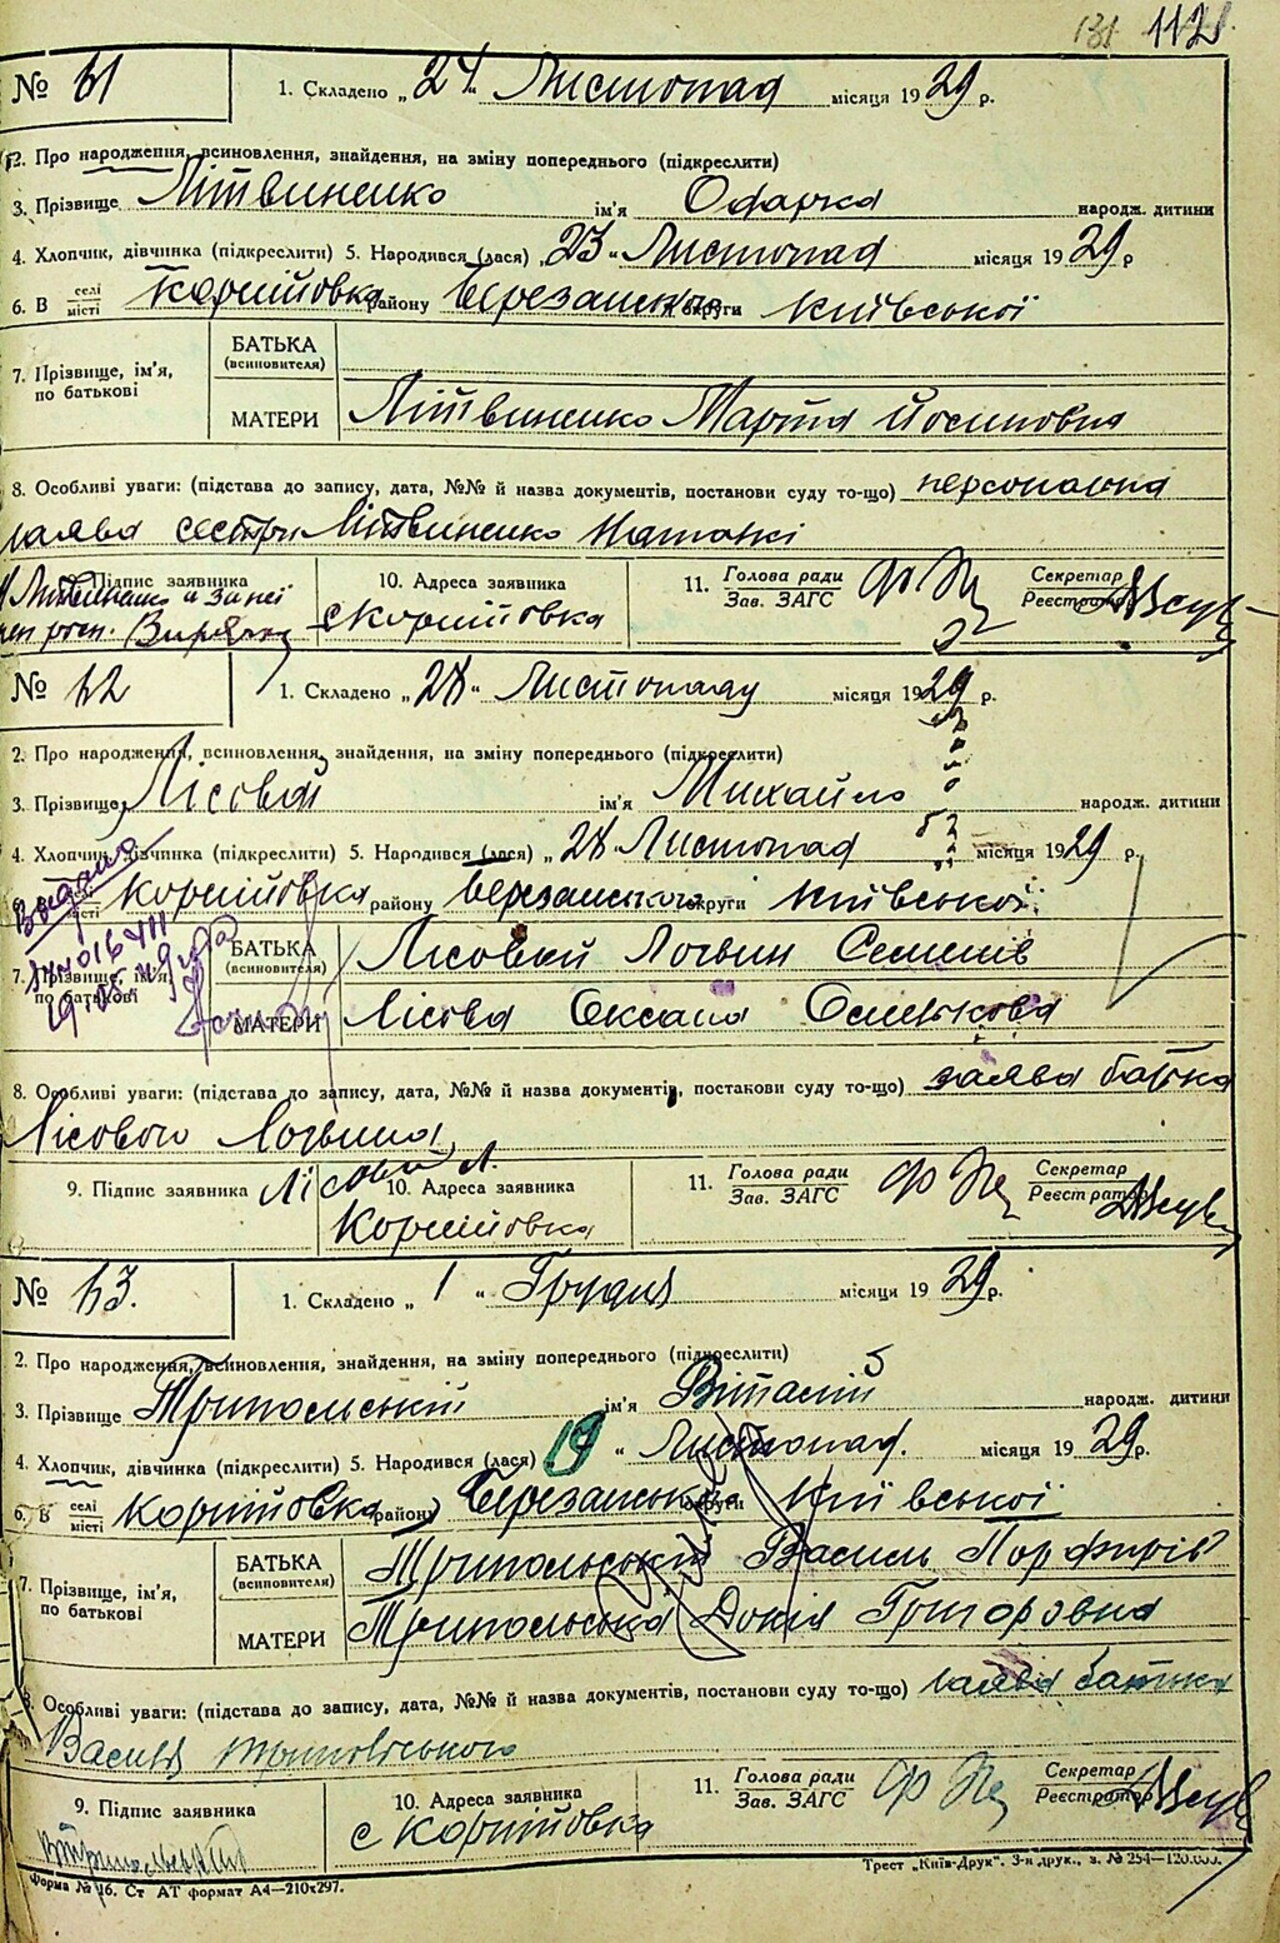 131 112
№ 61 1. Складено „24“ Листопад місяця 1929 р.
2. Про народження, всиновлення, знайдення, на зміну попереднього (підкреслити)
3. Прізвище Літвиненко ім'я Одарка народж. дитини
4. Хлопчик, дівчинка (підкреслити) 5. Народився (лася) „23“ Листопад місяця 1929 р
6. В селі місті Корніївка району Березанського округи Київської
7. Прізвище, ім'я, по батькові
БАТЬКА (всиновителя)
МАТЕРИ Літвиненко Марта Йосиповна
8. Особливі уваги: (підстава до запису, дата, №№ й назва документів, постанови суду то-що) персональна
заява сестри Літвиненко Наталкі
9. Підпис заявника 10. Адреса заявника 11. Голова ради Зав. ЗАГС Секретар Реєстратор
Литвиненко а за неї
с Корніївка
№ 62 1. Складено „28“ Листопаду місяця 1929 р.
2. Про народження, всиновлення, знайдення, на зміну попереднього (підкреслити)
3. Прізвище Лісовий ім'я Михайло народж. дитини
4. Хлопчик, дівчинка (підкреслити) 5. Народився (лася) „28“ Листопад місяця 1929 р.
6. В селі місті Корніївка району Березанського округи Київської
Видано
7. Прізвище, ім'я, по батькові
БАТЬКА (всиновителя) Лісовий Логвин Семенів
МАТЕРИ Лісова Оксана
8. Особливі уваги: (підстава до запису, дата, №№ й назва документів, постакови суду то-що) заява батька
Лісового Логвина
9. Підпис заявника Лісовий Л. 10. Адреса заявника 11. Голова ради Зав. ЗАГС Секретар Реєстратор
Корніївка
№ 63. 1. Складено „1“ Грудня місяця 1929 р.
2. Про народження, всиновлення, знайдення, на зміну попереднього (підкреслити)
3. Прізвище Трипольський ім'я Віталій народж. дитини
4. Хлопчик, дівчинка (підкреслити) 5. Народився (лася) „19“ Листопад. місяця 1929 р.
6. В селі місті Корніївка району Березанського округи Київської
7. Прізвище, ім'я, по батькові
БАТЬКА (всиновителя) Трипольський Василь Порфирів
МАТЕРИ Трипольська Докія Григоровна
8. Особливі уваги: (підстава до запису, дата, №№ й назва документів, постанови суду то-що) заява батька
Василя Трипольського
9. Підпис заявника 10. Адреса заявника 11. Голова ради Зав. ЗАГС Секретар Реєстратор
с Корніївка
Форма № 16. Ст АТ формат А4—210х297.
Трест „Київ-Друк“. 3-я друк., з. № 254—120.000.